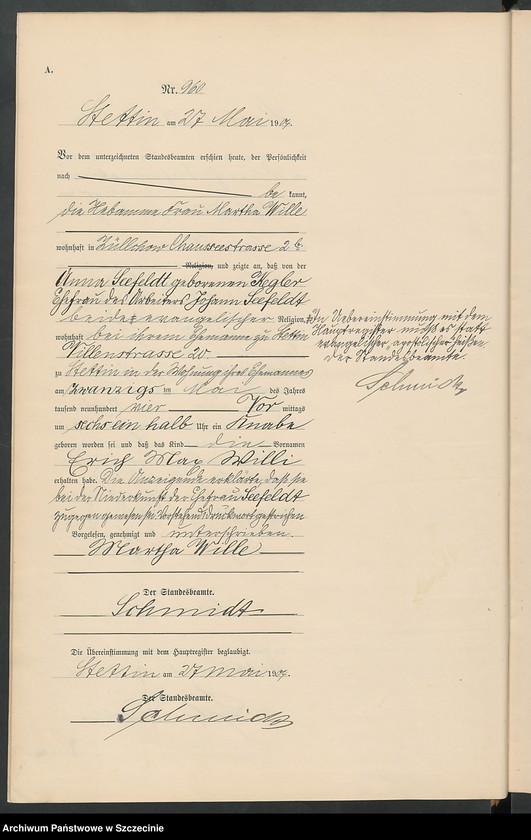 A.
Nr. 960
Stettin am 27 Mai 1904.
Vor dem unterzeichneten Standesbeamten erschien heute, der Persönlichkeit
nach
be kannt,
die Hebamme Frau Martha Wille
wohnhaft in Züllchow Chausseestrasse 2b
Religion, und zeigte an, daß von der
Anna Seefeldt geborenen Kegler
Ehefrau des Arbeiters Johann Seefeldt
beide evangelischer Religion,
wohnhaft bei ihrem Ehemanne zu Stettin
Villenstrasse 20
zu Stettin in der Wohnung ihres Ehemannes
am zwanzigs ten Mai des Jahres
tausend neunhundert vier Vor mittags
um sechs ein halb Uhr ein Knabe
geboren worden sei und daß das Kind die Vornamen
Erich Max Willi
erhalten habe. Die Anzeigende erklärte, daß sie
bei der Niederkunft der Ehefrau Seefeldt
zugegen gewesen sei. Vorstehend Druckwort gestrichen
Vorgelesen, genehmigt und unterschrieben.
Martha Wille
Der Standesbeamte.
Schmidt
Die Übereinstimmung mit dem Hauptregister beglaubigt.
Stettin am 27 Mai 1904.
Der Standesbeamte.
Schmidt
In Uebereinstimmung mit dem
Hauptregister muß es statt
evangelischer, apostolischer heißen
Der Standesbeamte.
Schmidt
Archiwum Państwowe w Szczecinie